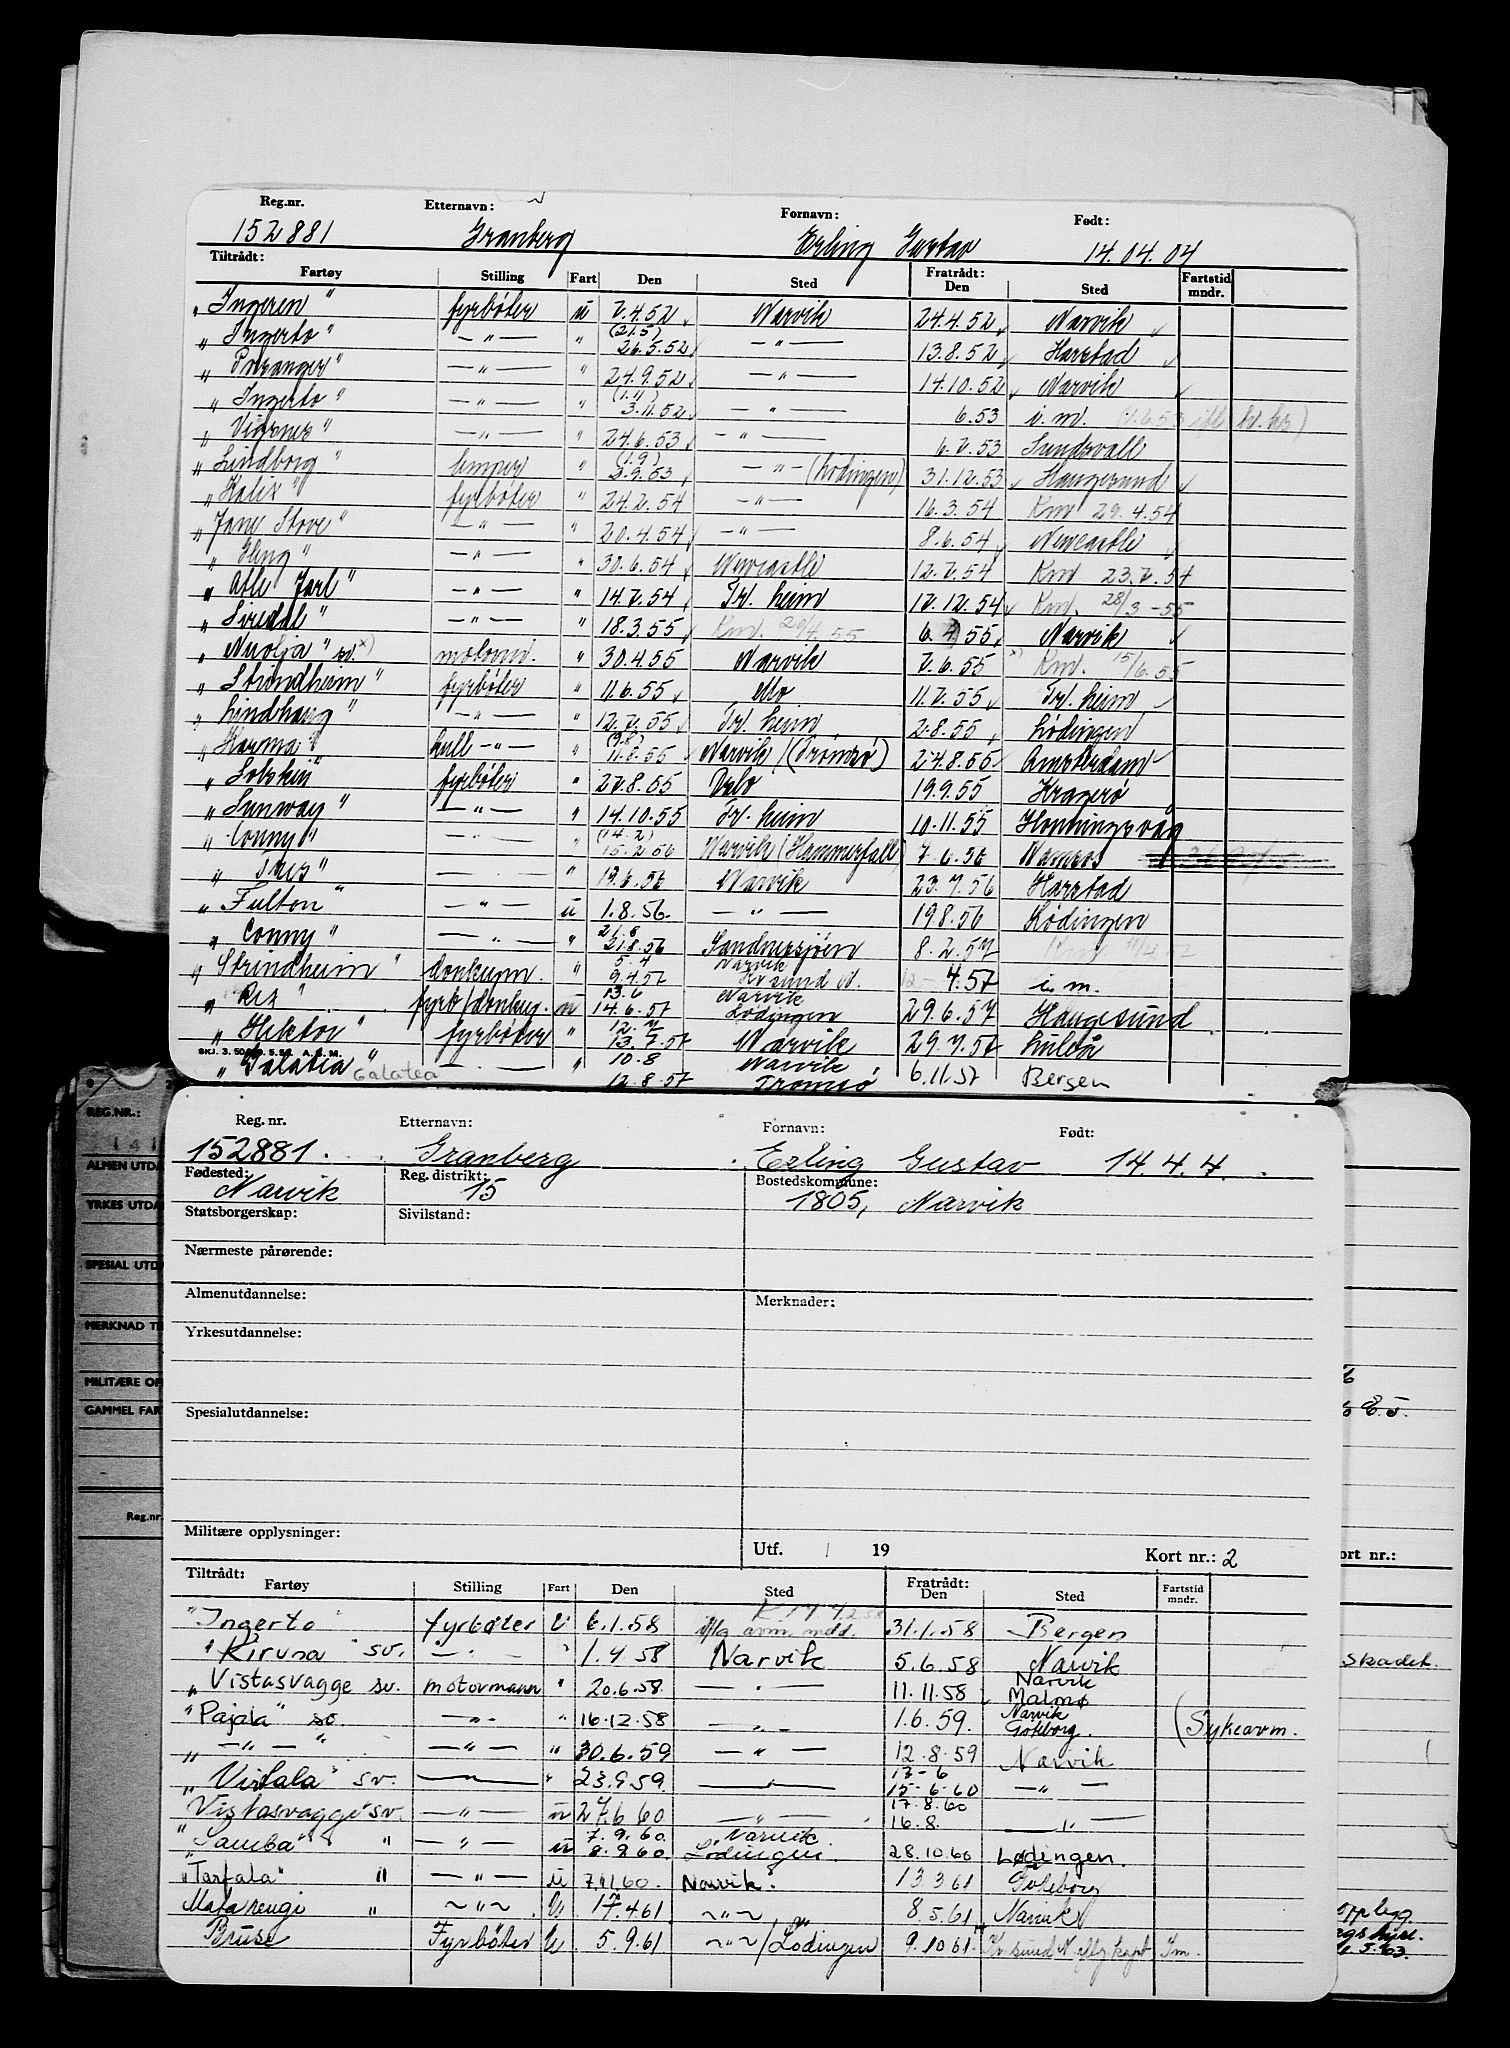 Reg.nr. Etternavn: Fornavn: Født:
152881 Granberg Erling Gustav 14.04.04
Tiltrådt: Fratrådt:
Fartøy Stilling Fart Den Sted Den Sted Fartstid mndr.
"Ingeren" fyrbøter u 7.4.52 Narvik 24.4.52 Narvik
"Ingerto" — " — " (21.5) 26.5.52 — " — 13.8.52 Harstad
— " — " 24.9.52 — " — 14.10.52 Narvik
"Ingerto" — " — " 3.11.52 — " — 6.53 i.m.
— " — " 24.6.53 — " — 6.7.53 Sundsvall
"Lindborg" lemper " (1.9) 2.9.53 — " — (Lødingen) 31.12.53 Haugesund
"Kalix" fyrbøter " 24.2.54 — " — 16.3.54 Km 29.4.54
"Jane Stove" — " — " 20.4.54 — " — 8.6.54 Newcastle
— " — " 30.6.54 Newcastle 12.7.54 Km 23.7.54
"Atle Jarl" — " — " 14.7.54 Tr.heim 17.12.54 Km. 28/3-55
"Siredal" — " — " 18.3.55 Km. 20/4.55 6.4.55 Narvik
"Nuolja" sv. x) motorm. " 30.4.55 Narvik 7.6.55 x) Km. 15/6.55
"Strindheim" fyrbøter " 11.6.55 Mo 11.7.55 Tr.heim
"Lindhaug" — " — " 12.7.55 Tr.heim 2.8.55 Lødingen
"Karma" kull — " — " (9.8) 11.8.55 Narvik (Tromsø) 24.8.55 Amsterdam
"Solskin" fyrbøter " 27.8.55 Oslo 19.9.55 Kragerø
"Sunway" — " — " 14.10.55 Tr.heim 10.11.55 Honningsvåg
"Conny" — " — " (14.2) 15.2.56 Narvik (Hammerfall) 7.6.56 Namsos
" 19.6.56 Narvik 23.7.56 Harstad
"Fulton" — " — u 1.8.56. — " — 19.8.56 Lødingen
"Conny" — " — " 21.8 31.8.56 Sandnessjøen 8.2.57
"Strindheim" donkeym. " 5.4 9.4.57 Narvik Kr sund N. 4.57 i.m.
fyrb/donkey. u 13.6 14.6.57 Narvik Lødingen 29.6.57 Haugesund
"Hektor" fyrbøter " 12.7 13.7.57 Narvik 29.7.57 Luleå
SKJ. 3. A.S.M.
"Galatea" Galatea — " — " 10.8 12.8.57 Narvik Tromsø 6.11.57 Bergen
REG.NR.:
ALMEN UTDA
YRKES UTDA
SPESIAL UTD
MERKNAD TI
MILITÆRE OP
GAMMEL FAR
Reg.nr.
Reg. nr. Etternavn: Fornavn: Født:
152881. Granberg Erling Gustav 14.4.4.
Fødested: Reg. distrikt: Bostedskommune:
Narvik 15 1805, Narvik
Statsborgerskap: Sivilstand:
Nærmeste pårørende:
Almenutdannelse: Merknader:
Yrkesutdannelse:
Spesialutdannelse:
Militære opplysninger:
Utf. / 19 Kort nr.: 2
ort nr.:
Tiltrådt: Fratrådt:
Fartøy Stilling Fart Den Sted Den Sted Fartstid mndr.
"Ingerto" fyrbøter U 6.1.58 iflg avm.meld. 31.1.58 Bergen
"Kiruna" sv. — " — " 1.4.58 Narvik 5.6.58 Narvik
"Vistasvagge sv. motormann " 20.6.58 — " — 11.11.58 Narvik Malmø
"Pajala" sv. — " — " 16.12.58 — " — 1.6.59. Narvik Gøteborg. (Sykeavm.
" — " — " — " — " 30.6.59 — " — 12.8.59 Narvik
sv. — " — " 23.9.59. — " — 13-6 15-6-60 — " —
"Vistasvagge" sv. — " — u 27.6.60 — " — 17.8.60 16.8. — " —
" — " — u 7.9.60. 8.9.60 Narvik Lødingen. 28.10.60 Lødingen.
"Tarfala" " — " — u 7.11.60. Narvik. 13.3.61 Gøteborg
Matarengi " — " — U 17.4.61 — " — 8.5.61 Narvik
Bruse Fyrbøter U 5.9.61 — " — / Lødingen 9.10.61 Kr sund N
skadet.